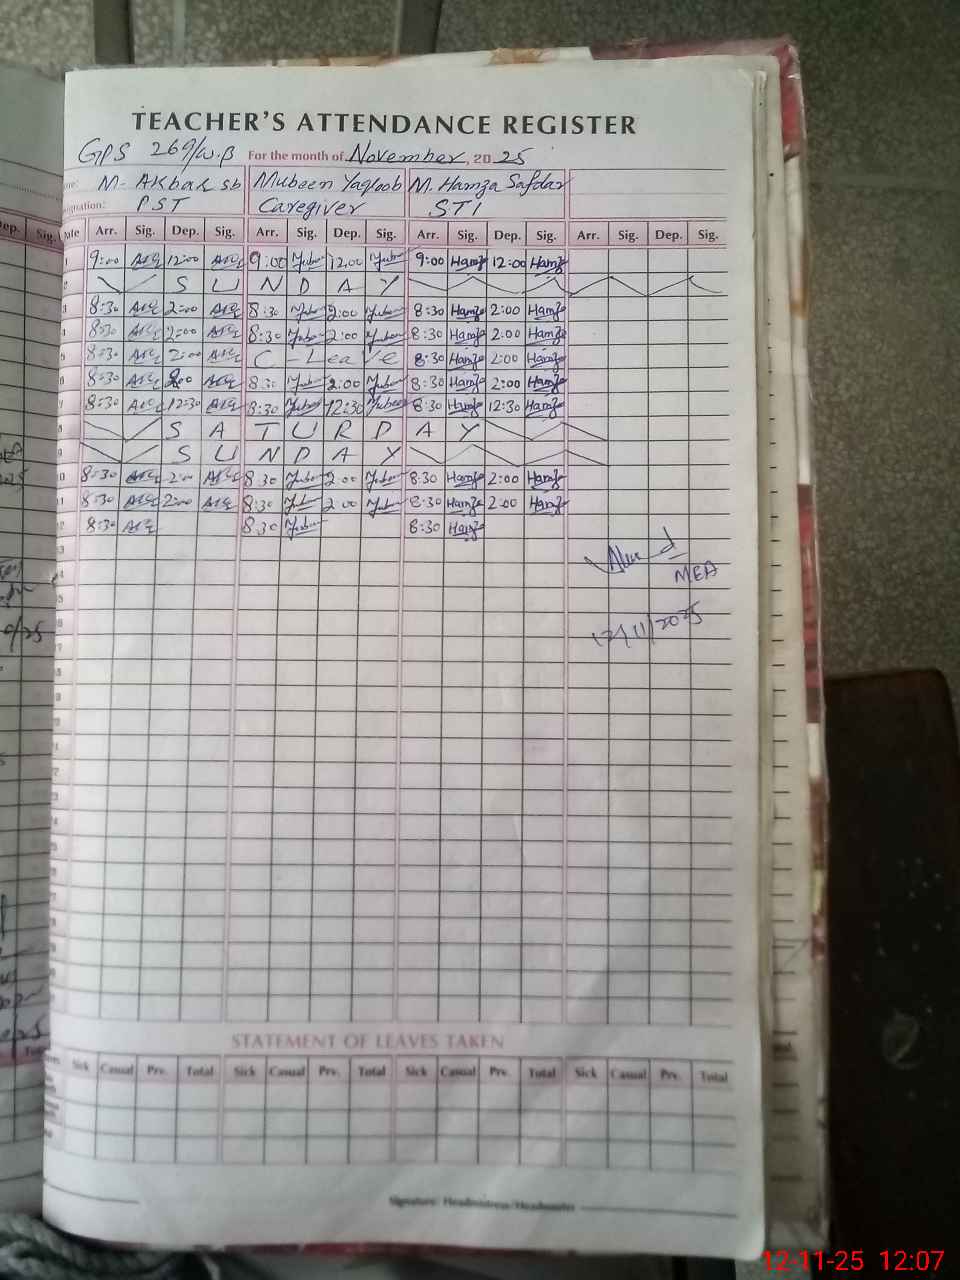 TEACHER'S ATTENDANCE REGISTER
GPS 269/W.B For the month of November, 2025
M. Akbar sb Mubeen Yaqoob M. Hamza Safdar
Designation: PST Caregiver STI
Date Arr. Sig. Dep. Sig. Arr. Sig. Dep. Sig. Arr. Sig. Dep. Sig. Arr. Sig. Dep. Sig.
1 9:00 12:00 9:00 12:00 9:00 Hamza 12:00 Hamza
2 S U N D A Y
3 8:30 2:00 8:30 2:00 8:30 Hamza 2:00 Hamza
4 8:30 2:00 8:30 2:00 8:30 Hamza 2:00 Hamza
5 8:30 2:00 C-Leave 8:30 Hamza 2:00 Hamza
6 8:30 2:00 8:30 2:00 8:30 Hamza 2:00 Hamza
7 8:30 12:30 8:30 12:30 8:30 Hamza 12:30 Hamza
8 S A T U R D A Y
9 S U N D A Y
10 8:30 2:00 8:30 2:00 8:30 Hamza 2:00 Hamza
11 8:30 2:00 8:30 2:00 8:30 Hamza 2:00 Hamza
12 8:30 8:30 8:30 Hamza
MEA
12/11/2025
STATEMENT OF LEAVES TAKEN
Sick Casual Prv. Total Sick Casual Prv. Total Sick Casual Prv. Total Sick Casual Prv. Total
Signature: Headmistress/Headmaster
12-11-25 12:07